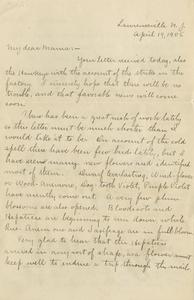 Lawrenceville N. J.
April 19, 1905
My dear Mamma:-
Your letter received today, also
the Hawkeye with the account of the strike in the
factory. I sincerely hope that there will be no
trouble, and that favorable news will come
soon.
There has been a great rush of work lately
so this letter must be much shorter than I
would like it to be. On account of the cold
spell there have been few birds lately, but I
have seen many new flowers and identified
most of them. Early Everlasting, Wind-flower
or Wood-Anemone, Dog-tooth Violet, Purple Violet
have recently come out. A very few plum
blossoms are also opened. Bloodroots and
Hepaticas are beginning to run down, while
Rue-Anemone and Saxifrage are in full bloom.
Very glad to hear that the Hepaticas
arrived in any sort of shape, as a flower must
keep well to endure a trip through the mail.